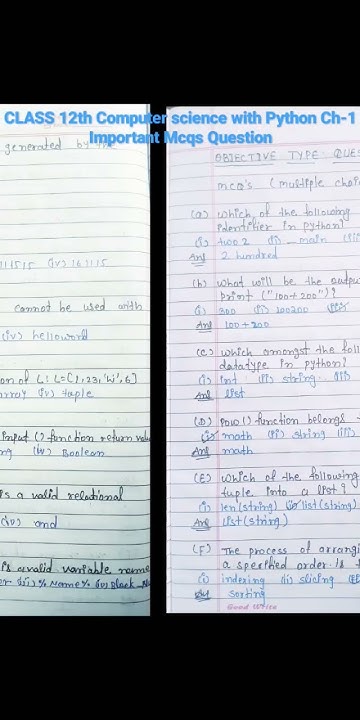 CLASS 12th Computer science with Python Ch-1
Important Mcqs Question
generated by the
111515 (iv) 161115
cannot be used with
(iv) helloworld
on of L: L=[1,23,'Wi',6]
array (iv) tuple
input () function return value
ng (iv) Boolean
is a valid relational
(iv) and
is a valid variable name
(iii) % Name % (iv) Black
OBJECTIVE TYPE QUES
mcq's (multiple choi
(a) which of the following
identifier in python?
(i) two2 (ii) _main (iii)
Ans 2 hundred
(b) what will be the outpu
print ("100+200")?
(i) 300 (ii) 100200 (iii)
Ans 100+200
(c) which amongst the foll
datatype in python?
(i) int (ii) string (iii)
Ans list
(D) pow() function belongs
(i) math (ii) string (iii)
Ans math
(E) which of the following
tuple into a list?
(i) len(string) (ii) list(string)
Ans list(string)
(F) The process of arrangi
a specified order is
(i) indexing (ii) slicing
Ans sorting
Good Write